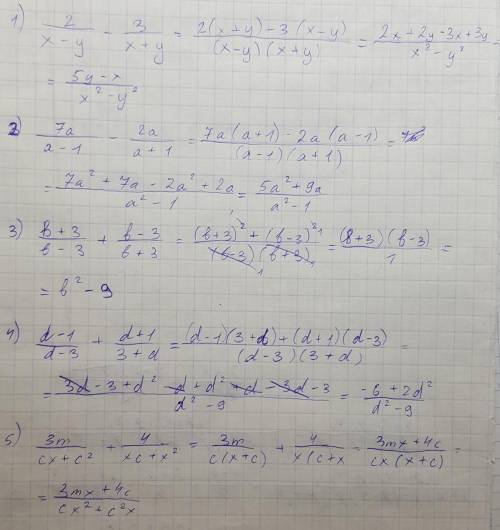 1) 2/(x-y) - 3/(x+y) = (2(x+y)-3(x-y))/((x-y)(x+y)) = (2x+2y-3x+3y)/(x²-y²) =
= (5y-x)/(x²-y²)
2) 7a/(a-1) - 2a/(a+1) = (7a(a+1)-2a(a-1))/((a-1)(a+1)) =
= (7a²+7a-2a²+2a)/(a²-1) = (5a²+9a)/(a²-1)
3) (в+3)/(в-3) + (в-3)/(в+3) = ((в+3)²+(в-3)²)/((в-3)(в+3)) = ((в+3)(в-3))/1 =
= в²-9
4) (d-1)/(d-3) + (d+1)/(3+d) = ((d-1)(3+d)+(d+1)(d-3))/((d-3)(3+d)) =
= (3d-3+d²-d+d²+d-3d-3)/(d²-9) = (-6+2d²)/(d²-9)
5) 3m/(cx+c²) + 4/(xc+x²) = 3m/(c(x+c)) + 4/(x(c+x) = (3mx+4c)/(cx(x+c)) =
= (3mx+4c)/(cx²+c²x)